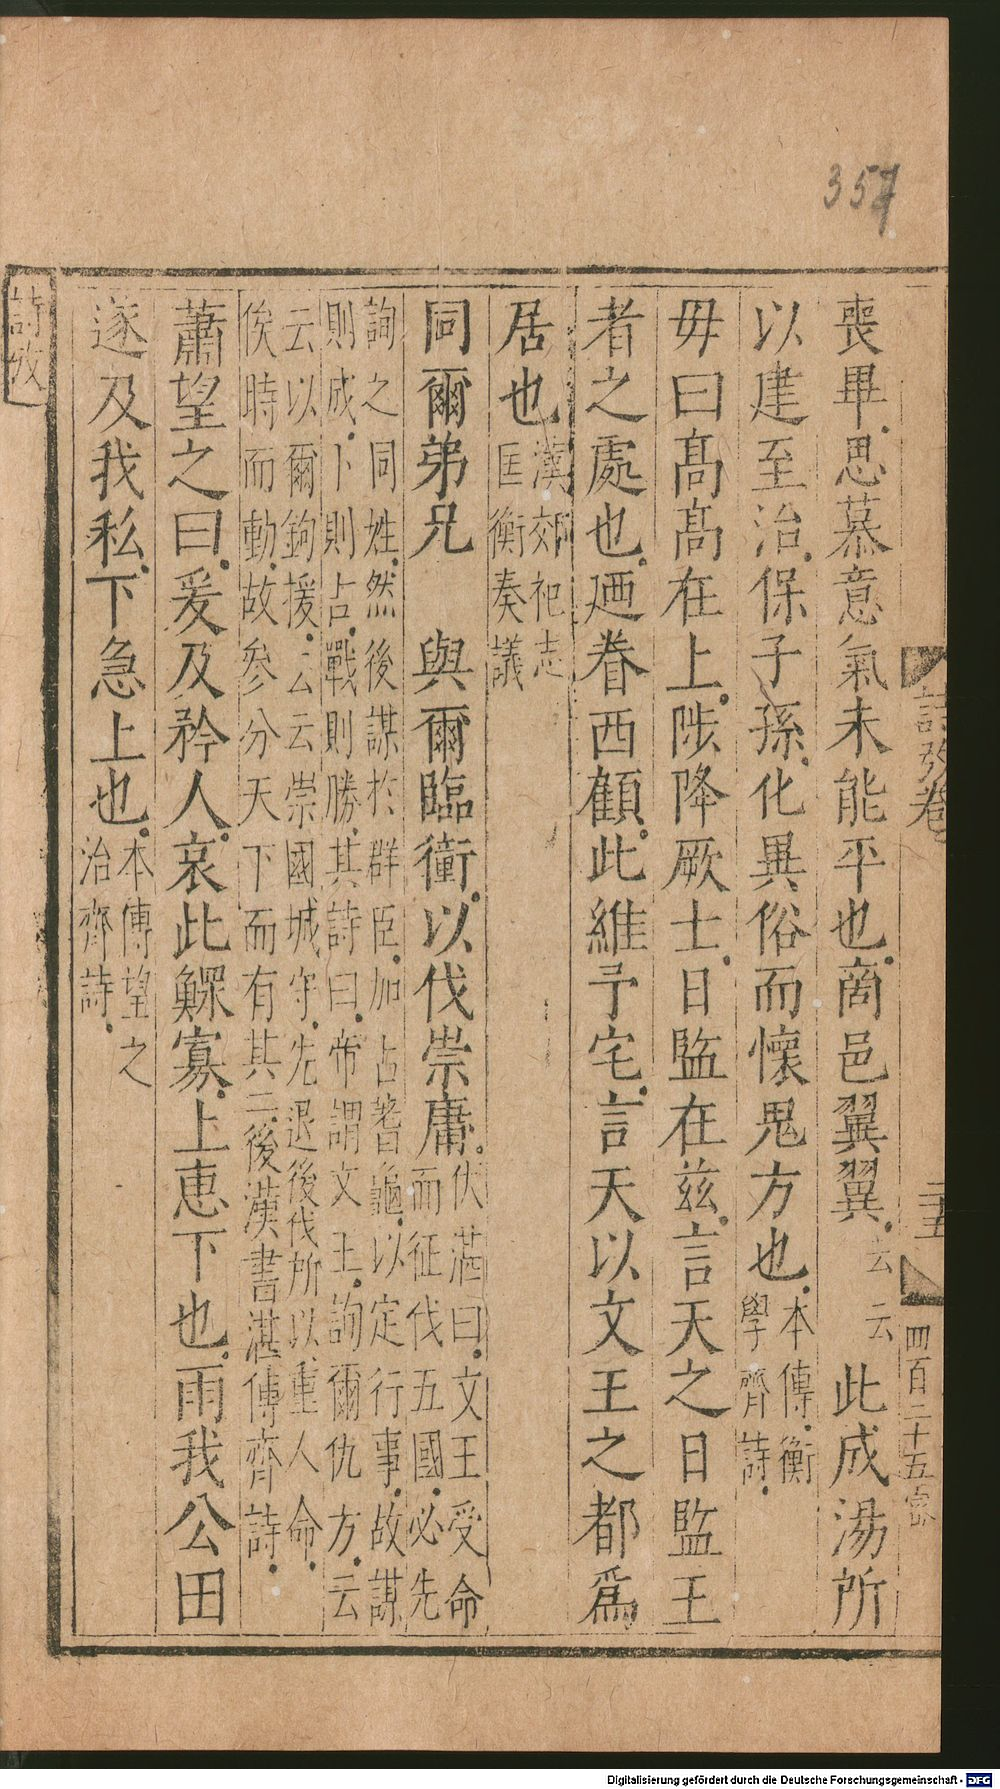 357
詩攷
詩攷卷
二十五
四百二十五字
喪畢思慕意氣未能平也商邑翼翼云云此成湯所
以建至治保子孫化異俗而懷鬼方也本傳衡
學齊詩
毋曰高高在上陟降厥士日監在茲言天之日監王
者之處也廼眷西顧此維予宅言天以文王之都爲
居也漢郊祀志
匡衡奏議
同爾弟兄 與爾臨衝以伐崇庸伏湛曰文王受命
而征伐五國必先
詢之同姓然後謀於群臣加占蓍龜以定行事故謀
則成卜則吉戰則勝其詩曰帝謂文王詢爾仇方云
云以爾鉤援云云崇國城守先退後伐所以重人命
俟時而動故參分天下而有其二後漢書湛傳齊詩
蕭望之曰爰及矜人哀此鰥寡上惠下也雨我公田
遂及我私下急上也本傳望之
治齊詩
Digitalisierung gefördert durch die Deutsche Forschungsgemeinschaft - DFG